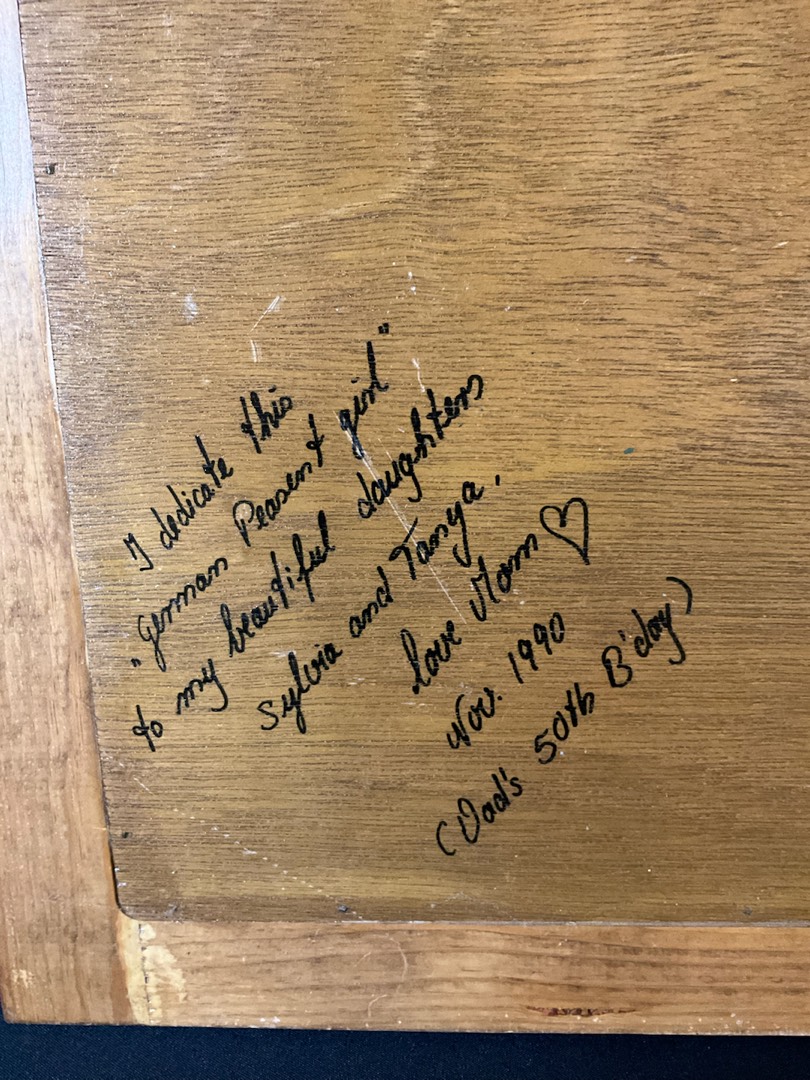 I dedicate this
„German Peasent girl"
to my beautiful daughters
Sylvia and Tanya.
love Mom ♡
Nov. 1990
(Dad's 50th B'day)